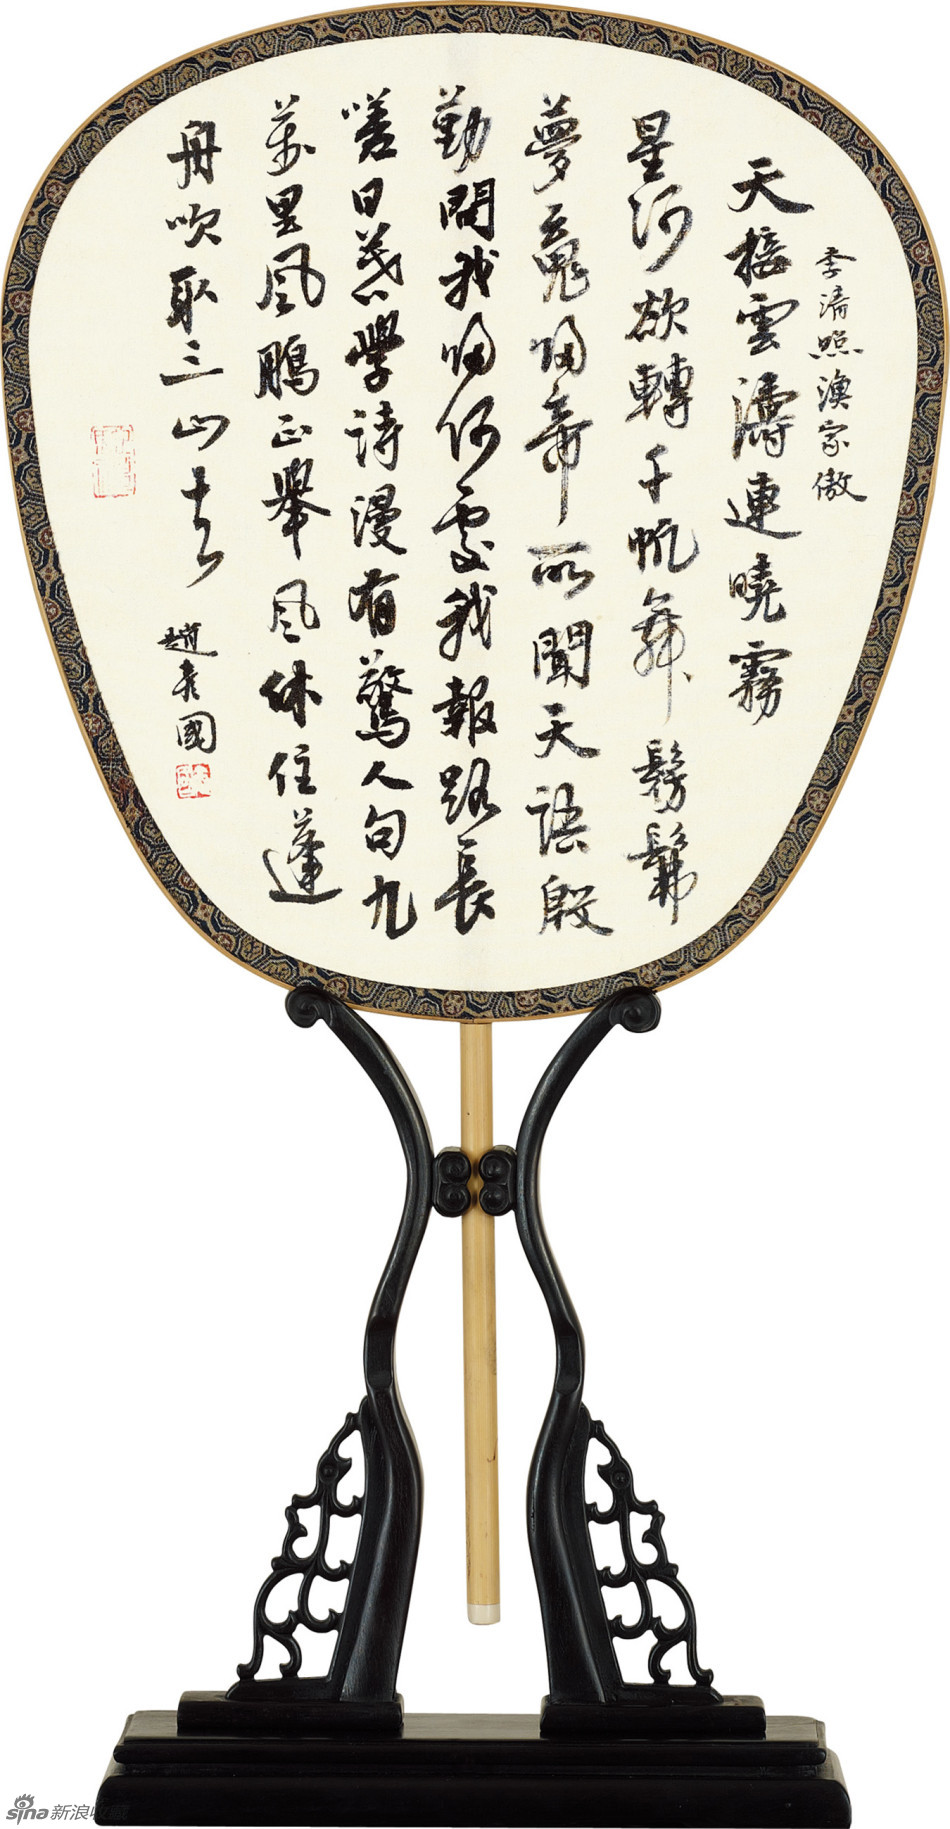 李清照漁家傲
天接雲濤連曉霧
星河欲轉千帆舞髣髴
夢魂歸帝所聞天語殷
勤問我歸何處我報路長
嗟日暮學詩漫有驚人句九
萬里風鵬正舉風休住蓬
舟吹取三山去
趙彥國
sina新浪收